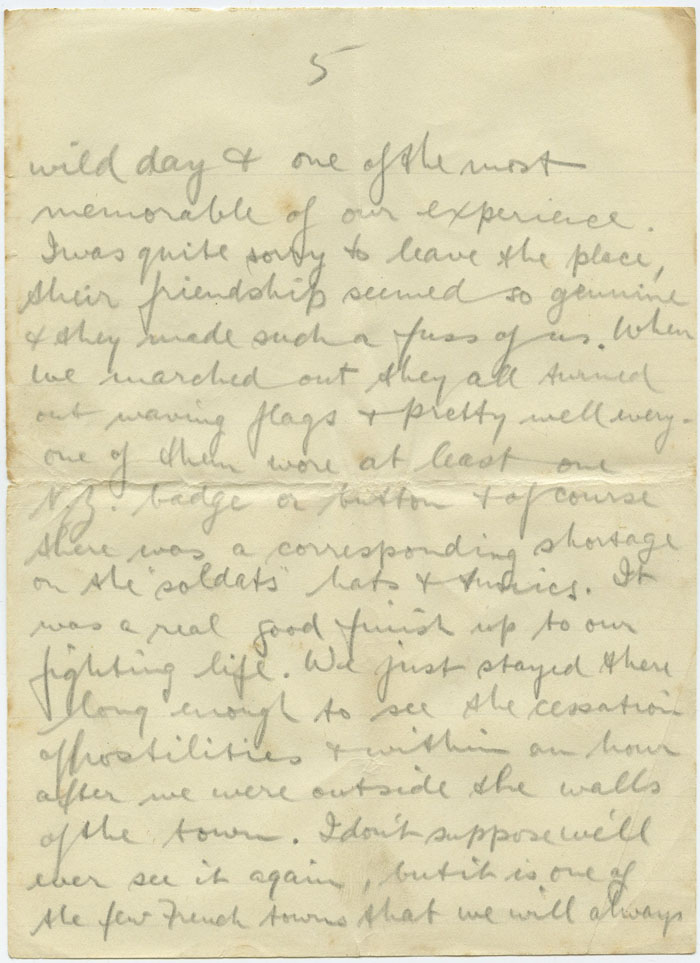 5
wild day & one of the most
memorable of our experience.
I was quite sorry to leave the place,
their friendship seemed so genuine
& they made such a fuss of us. When
we marched out they all turned
out waving flags & pretty well every-
one of them wore at least one
N.Z. badge or button & of course
there was a corresponding shortage
on the "soldats" hats & tunics. It
was a real good finish up to our
fighting life. We just stayed there
long enough to see the cessation
of hostilities & within an hour
after we were outside the walls
of the town. I don't suppose we'll
ever see it again, but it is one of
the few French towns that we will always